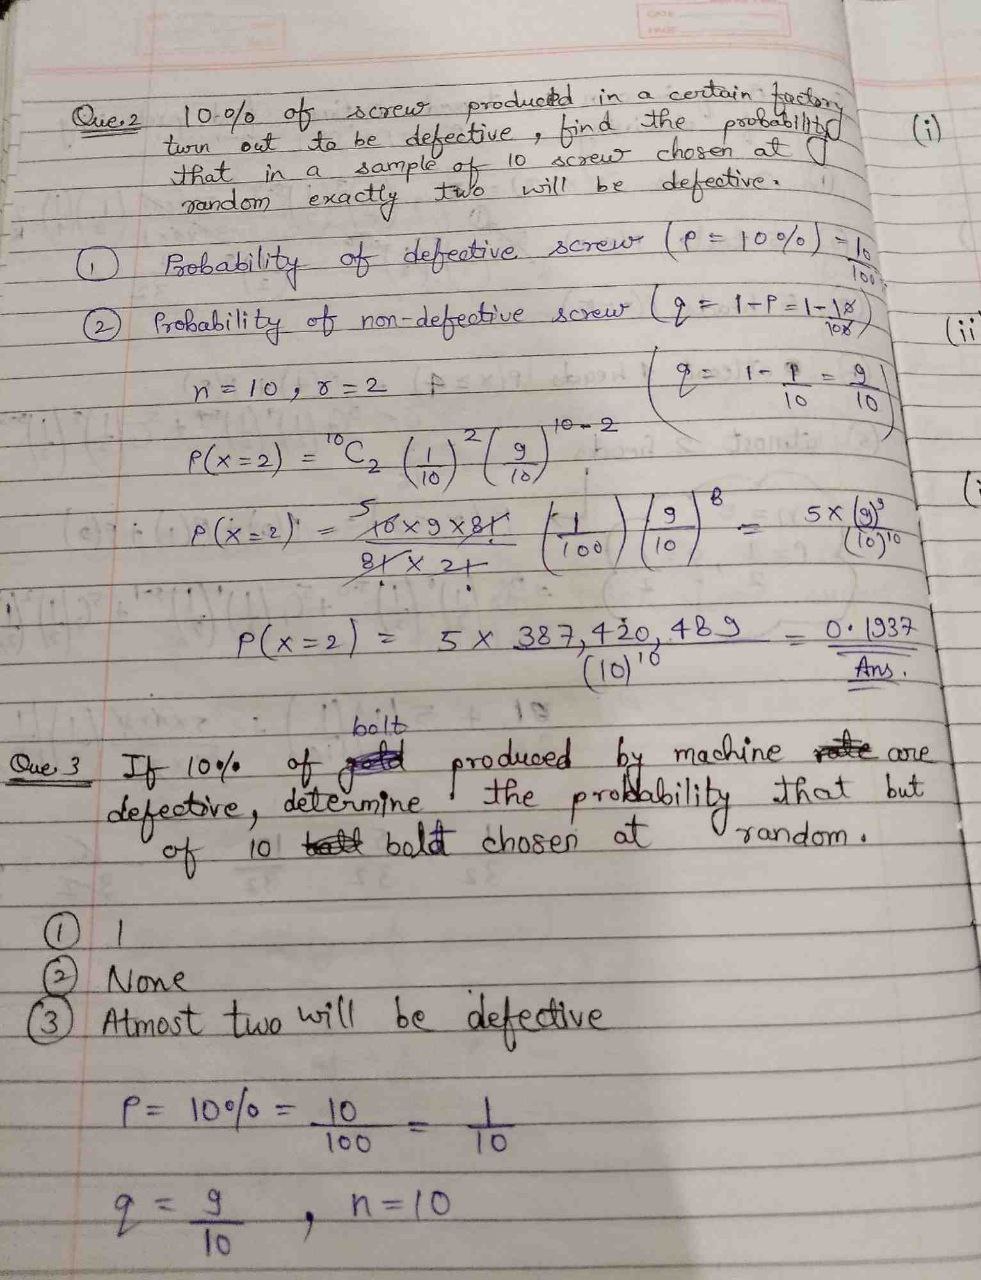 Que.2 10% of screw producted in a certain factory
turn out to be defective, find the probability
that in a sample of 10 screw chosen at
random exactly two will be defective.
(i)
① Probability of defective screw (P = 10%) = 10/100
② Probability of non-defective screw (q = 1-P = 1-10/100)
(ii
n = 10, r = 2 (q = 1 - 1/10 = 9/10)
P(x=2) = ¹⁰C₂ (1/10)² (9/10)¹⁰⁻²
P(x=2) = 5 10×9×8!/8!×2! (1/100) (9/10)⁸ = 5×(9)⁹/(10)¹⁰
P(x=2) = 5 × 387,420,489/(10)¹⁰ = 0.1937
Ans.
bolt
Que. 3 If 10% of produced by machine are
defective, determine the probability that but
of 10 bolt chosen at random.
① 1
② None
③ Atmost two will be defective
P = 10% = 10/100 = 1/10
q = 9/10, n = 10